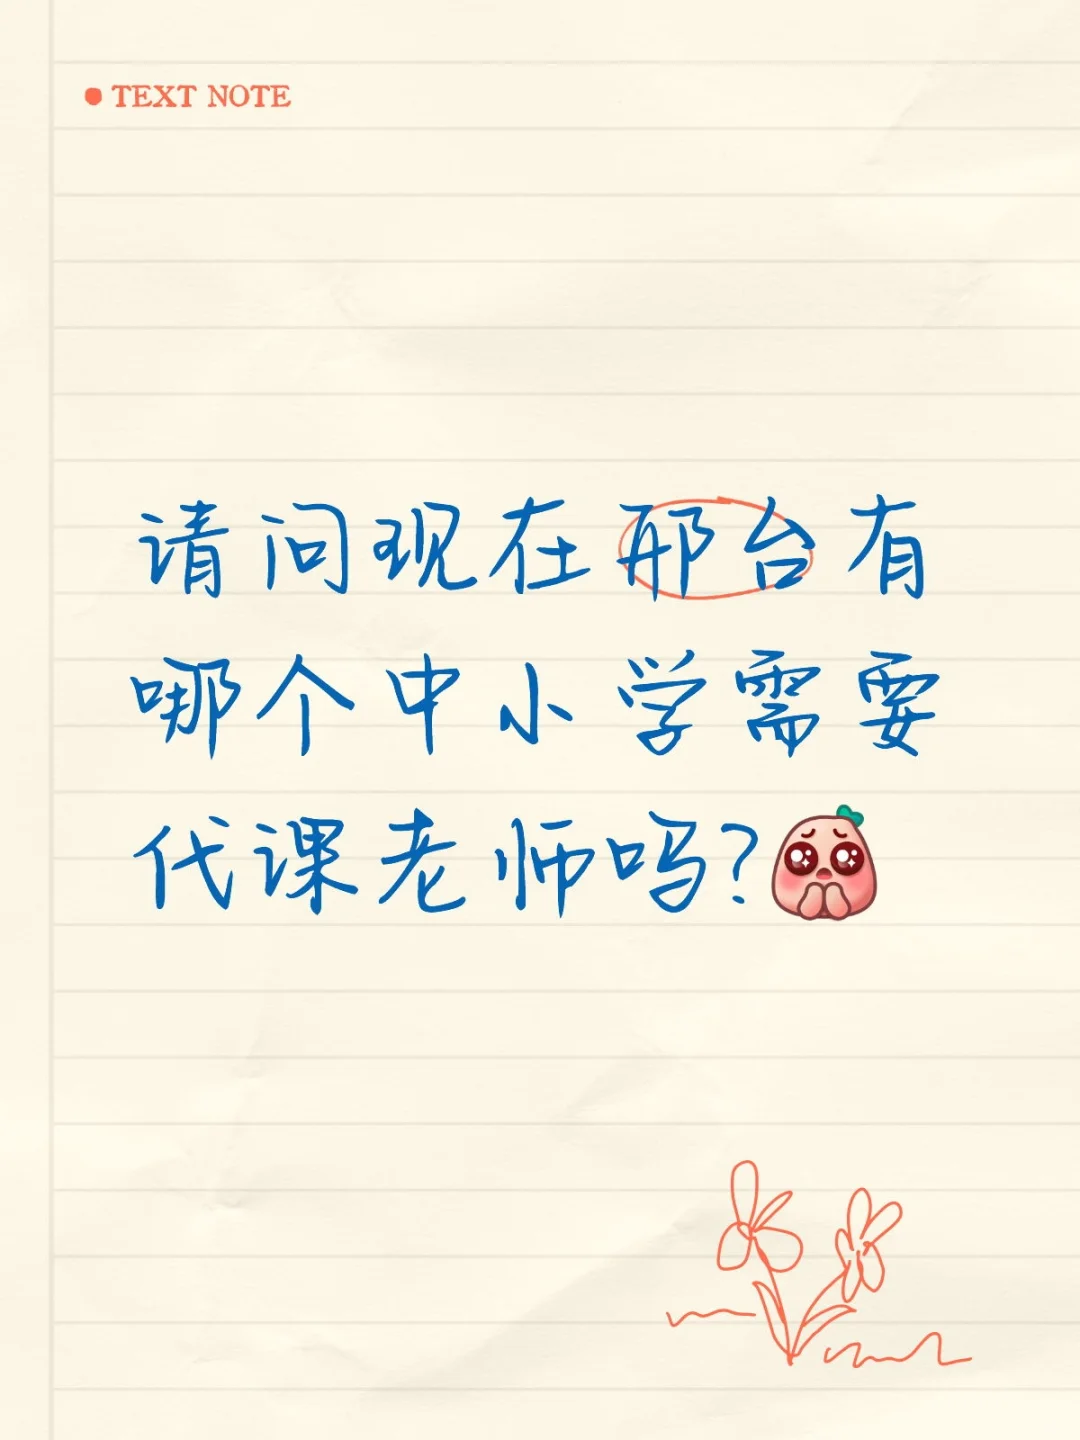 TEXT NOTE
请问现在邢台有
哪个中小学需要
代课老师吗?